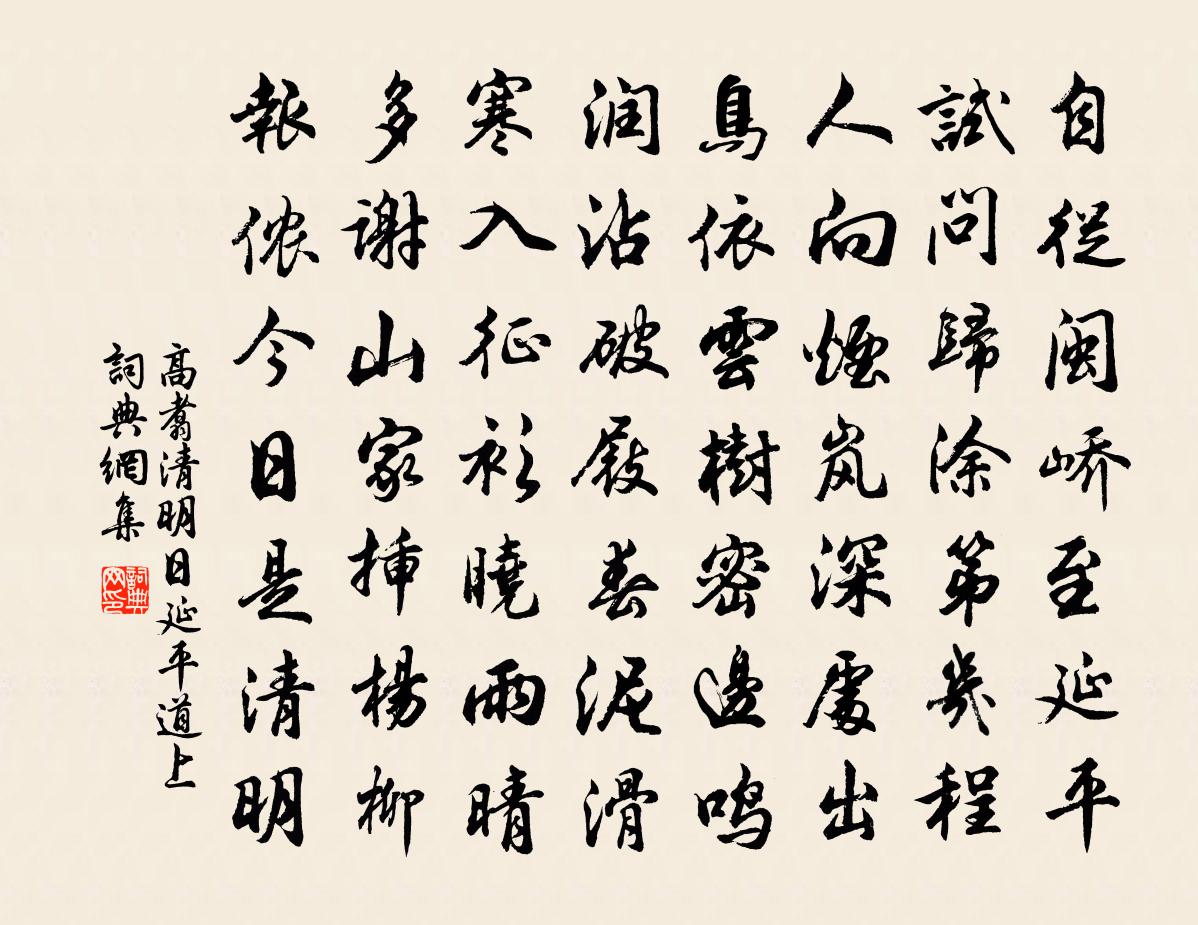 自從闽峤至延平
試問歸涂第幾程
人向煙岚深處出
鳥依雲樹密邊鳴
润沾破屐春泥滑
寒入征衫曉雨晴
多謝山家插楊柳
報侬今日是清明
高翥清明日延平道上
詞典網集
詞典网印